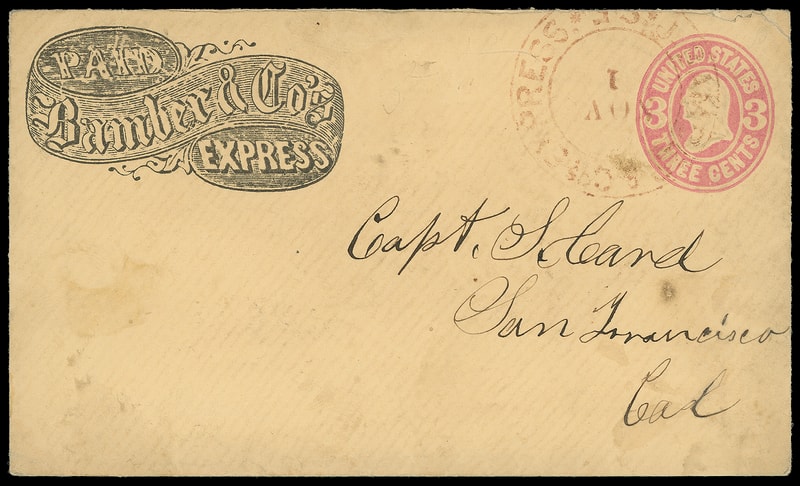 PAID
Bamber & Co's
EXPRESS
EXPRESS
NOV
1
UNITED STATES
3 3
THREE CENTS
Capt. S. Card
San Francisco
Cal